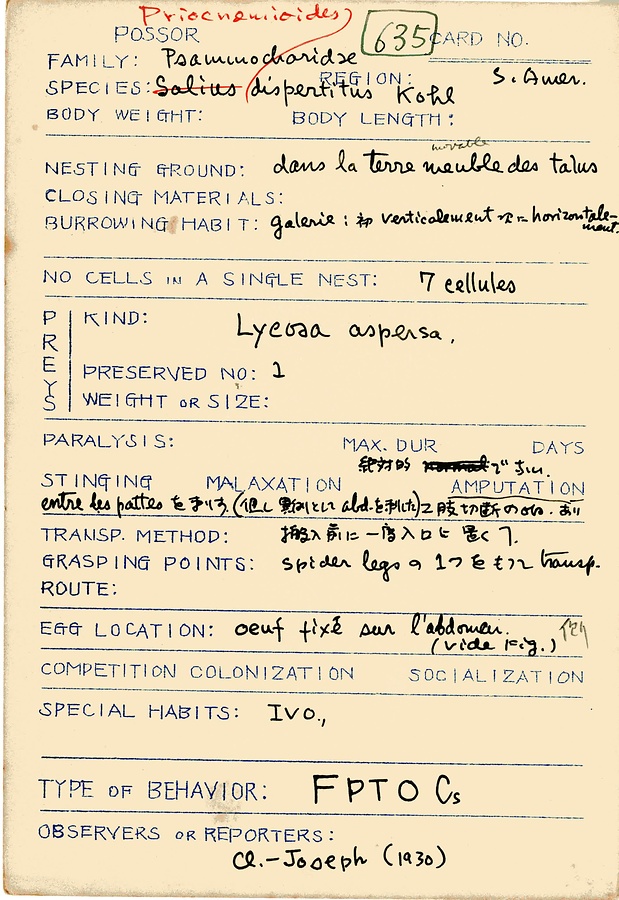 Priocnemioides
POSSOR 635 CARD NO.
FAMILY: Psammocharidae
REGION: S. Amer.
SPECIES: Salius dispertitus Kohl
BODY WEIGHT: BODY LENGTH:
movable
NESTING GROUND: dans la terre meuble des talus
CLOSING MATERIALS:
BURROWING HABIT: galerie: 初 verticalement 次に horizontale-
ment.
NO CELLS IN A SINGLE NEST: 7 cellules
PREYS
KIND: Lycosa aspersa.
PRESERVED NO: 1
WEIGHT OR SIZE:
PARALYSIS: MAX. DUR DAYS
絶対的 normal でない.
STINGING MALAXATION AMPUTATION
entre les pattes をまりす (但し 例として abd. を刺した) 2 肢切断の 、あり
TRANSP. METHOD: 搬入前に一度入口に置く?
GRASPING POINTS: spider legs の 1つをもつて transp.
ROUTE:
EGG LOCATION: oeuf fixé sur l'abdomen.
(vide Fig.)
COMPETITION COLONIZATION SOCIALIZATION
SPECIAL HABITS: IVO.,
TYPE OF BEHAVIOR: FPTOCs
OBSERVERS OR REPORTERS:
Cl.-Joseph (1930)